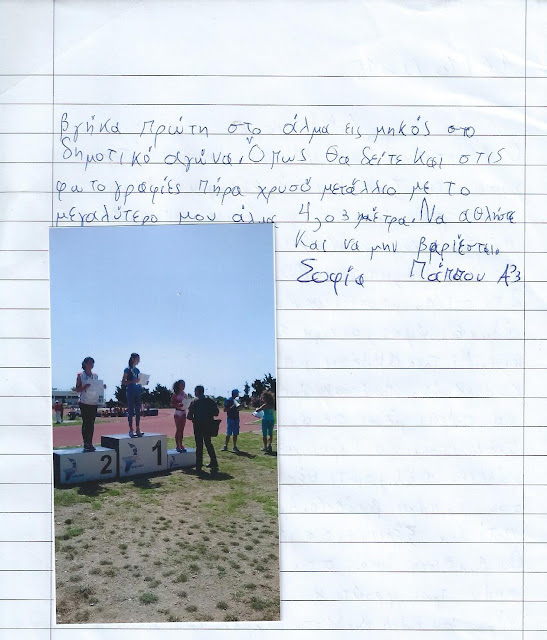 βγήκα πρώτη στο άλμα εις μηκός στο
δημοτικό αγώνα. Όπως θα δείτε και στις
φωτογραφίες πήρα χρυσό μετάλλιο με το
μεγαλύτερο μου άλμα 4,03 μέτρα. Να αθλήστε
Και να μην βαριέστε.
Σοφία Πάππου Α΄3
2
1